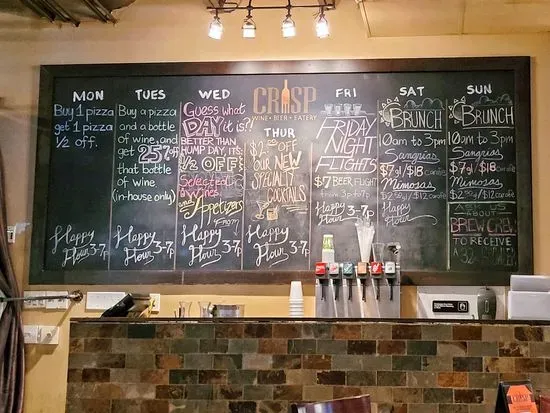 MON
Buy 1 pizza
get 1 pizza
1/2 off.
Happy
Hour 3-7p
TUES
Buy a pizza
and a bottle
of wine, and
get 25% off
that bottle
of wine
(in-house only)
Happy
Hour 3-7p
WED
GUESS what
DAY it is?!
BETTER THAN
HUMP DAY, IT'S
1/2 OFF
Selected
and Appetizers
Happy
Hour 3-7p
CRISP
WINE • BEER • EATERY
THUR
$2.00 OFF
our NEW
SPECIALTY
COCKTAILS
Happy
Hour 3-7p
FRI
FRIDAY
NIGHT
FLIGHTS
$7 BEER FLIGHT
from 3p to 7p
Happy
Hour 3-7p
SAT
BRUNCH
10am to 3pm
Sangrias
$7gl/$18 carafe
Mimosas
Happy
Hour
SUN
BRUNCH
10am to 3pm
Sangrias
$7gl/$18 carafe
Mimosas
ABOUT
BREW CREW
TO RECEIVE
CRISP